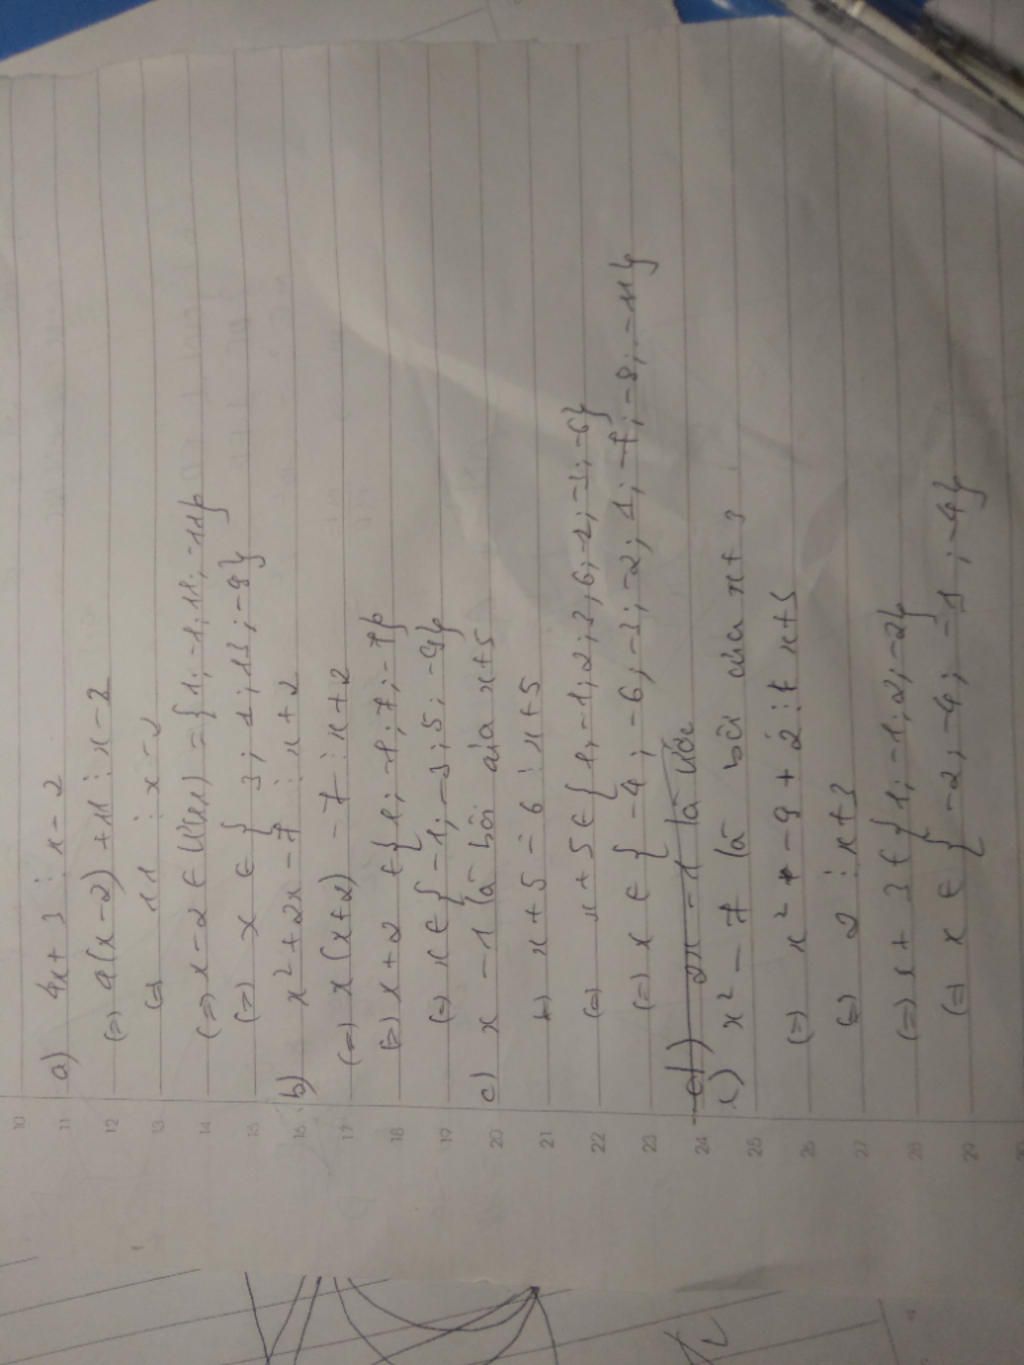 10
11 a) 4x + 3 ⋮ x - 2
12 (=) 4(x-2) + 11 ⋮ x-2
13 (=) 11 ⋮ x-2
14 (=) x-2 ∈ Ư(11) = {1; -1; 11; -11}
15 (=) x ∈ { 3; 1; 13; -9}
16 b) x² + 2x - 7 ⋮ x+2
17 (=) x(x+2) - 7 ⋮ x+2
18 (=) x+2 ∈ {1; -1; 7; -7}
19 (=) x ∈ {-1; -3; 5; -9}
20 c) x - 1 là bội của x+5
21 x + 5 - 6 ⋮ x+5
22 (=) x+5 ∈ {1; -1; 2; 3; 6; -2; -3; -6}
23 (=) x ∈ { -4; -6; -3; -2; 1; -7; -8; -11}
24 d) 2x - 1 là ước
25 x² - 7 là bội của x+3
26 (=) x² - 9 + 2 ⋮ x+5
27 (=) 2 ⋮ x+3
28 (=) x + 3 ∈ {1; -1; 2; -2}
29 (=) x ∈ { -2; -4; -1; -4}